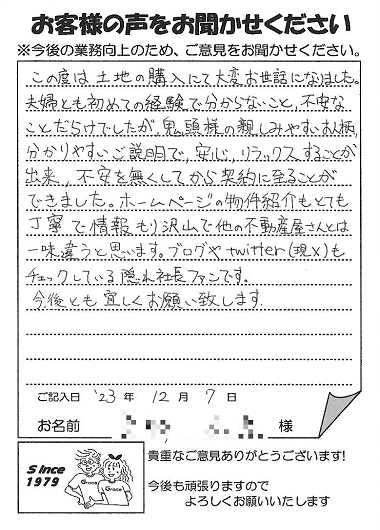 お客様の声をお聞かせください
※今後の業務向上のため、ご意見をお聞かせください。
この度は土地の購入にて大変お世話になりました。
夫婦とも初めての経験で分からないこと、不安な
ことだらけでしたが、鬼頭様の親しみやすいお人柄、
分かりやすいご説明で、安心、リラックスすることが
出来、不安を無くしてから契約に至ることが
できました。ホームページの物件紹介もとても
丁寧で情報もり沢山で他の不動産屋さんとは
一味違うと思います。ブログやtwitter(現X)も
チェックしている隠れ社長ファンです。
今後とも宜しくお願い致します
ご記入日 '23 年 12 月 7 日
お名前 様
Since
1979
Grace
Grace
貴重なご意見ありがとうございます!
今後も頑張りますので
よろしくお願いいたします